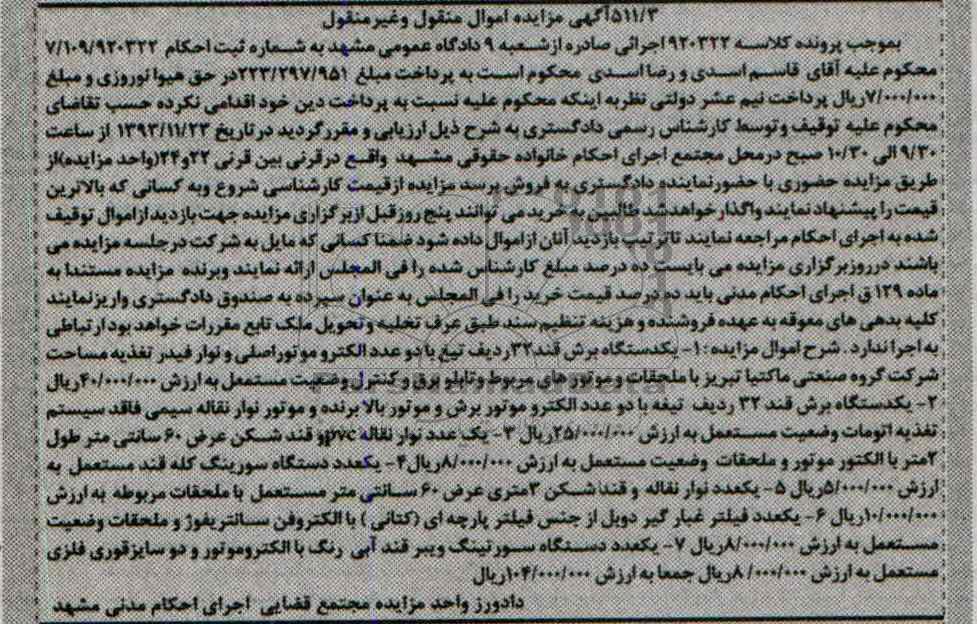 ۵۱۱/۳آگهی مزایده اموال منقول وغیرمنقول
بموجب پرونده کلاسه ۹۲۰۳۲۲ اجرائی صادره ازشعبه ۹ دادگاه عمومی مشهد به شماره ثبت احکام ۷/۱۰۹/۹۲۰۳۲۲
محکوم علیه آقای قاسم اسدی و رضا اسدی محکوم است به پرداخت مبلغ ۲۲۳/۲۹۷/۹۵۱در حق هیوا نوروزی و مبلغ
۷/۰۰۰/۰۰۰ریال پرداخت نیم عشر دولتی نظربه اینکه محکوم علیه نسبت به پرداخت دین خود اقدامی نکرده حسب تقاضای
محکوم علیه توقیف وتوسط کارشناس رسمی دادگستری به شرح ذیل ارزیابی و مقررگردید درتاریخ ۱۳۹۳/۱۱/۲۳ از ساعت
۹/۳۰ الی ۱۰/۳۰ صبح درمحل مجتمع اجرای احکام خانواده حقوقی مشهد واقع درقرنی بین قرنی ۲۲و۲۴(واحد مزایده)از
طریق مزایده حضوری با حضورنماینده دادگستری به فروش برسد مزایده ازقیمت کارشناسی شروع وبه کسانی که بالاترین
قیمت را پیشنهاد نمایند واگذارخواهدشد طالبین به خرید می توانند پنج روزقبل ازبرگزاری مزایده جهت بازدید ازاموال توقیف
شده به اجرای احکام مراجعه نمایند تاترتیب بازدید آنان ازاموال داده شود ضمنا کسانی که مایل به شرکت درجلسه مزایده می
باشند درروزبرگزاری مزایده می بایست ده درصد مبلغ کارشناس شده را فی المجلس ارائه نمایند وبرنده مزایده مستندا به
ماده ۱۲۹ ق اجرای احکام مدنی باید ده درصد قیمت خرید را فی المجلس به عنوان سپرده به صندوق دادگستری واریزنمایند
کلیه بدهی های معوقه به عهده فروشنده و هزینه تنظیم سند طبق عرف تخلیه وتحویل ملک تابع مقررات خواهد بود ارتباطی
به اجرا ندارد . شرح اموال مزایده : ۱- یکدستگاه برش قند۳۲ردیف تیغ با دو عدد الکترو موتوراصلی و نوار فیدر تغذیه مساحت
شرکت گروه صنعتی ماکتیا تبریز با ملحقات و موتور های مربوط وتابلو برق و کنترل وضعیت مستمعل به ارزش ۴۰/۰۰۰/۰۰۰ریال
۲- یکدستگاه برش قند ۳۲ ردیف تیغه با دو عدد الکترو موتور برش و موتور بالا برنده و موتور نوار نقاله سیمی فاقد سیستم
تغذیه اتومات وضعیت مستعمل به ارزش ۲۵/۰۰۰/۰۰۰ریال ۳- یک عدد نوار نقاله pvcو قند شکن عرض ۶۰ سانتی متر طول
۲متر با الکتور موتور و ملحقات وضعیت مستعمل به ارزش ۸/۰۰۰/۰۰۰ریال۴- یکعدد دستگاه سورینگ کله قند مستعمل به
ارزش ۵/۰۰۰/۰۰۰ریال ۵- یکعدد نوار نقاله و قندشکن ۳متری عرض ۶۰ سانتی متر مستعمل با ملحقات مربوطه به ارزش
۱۰/۰۰۰/۰۰۰ریال ۶- یکعدد فیلتر غبار گیر دوبل از جنس فیلتر پارچه ای (کتانی ) با الکتروفن سانتریفوژ و ملحقات وضعیت
مستعمل به ارزش ۸/۰۰۰/۰۰۰ریال ۷- یکعدد دستگاه سورتینگ ویبر قند آبی رنگ با الکتروموتور و دو سایزقوری فلزی
مستعمل به ارزش ۸/۰۰۰/۰۰۰ریال جمعا به ارزش ۱۰۴/۰۰۰/۰۰۰ریال
دادورز واحد مزایده مجتمع قضایی اجرای احکام مدنی مشهد